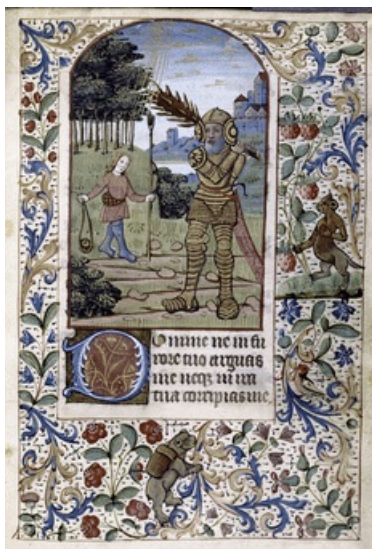 Domine ne in fu
rore tuo arguas
me neqz in ira
tua corripias me.